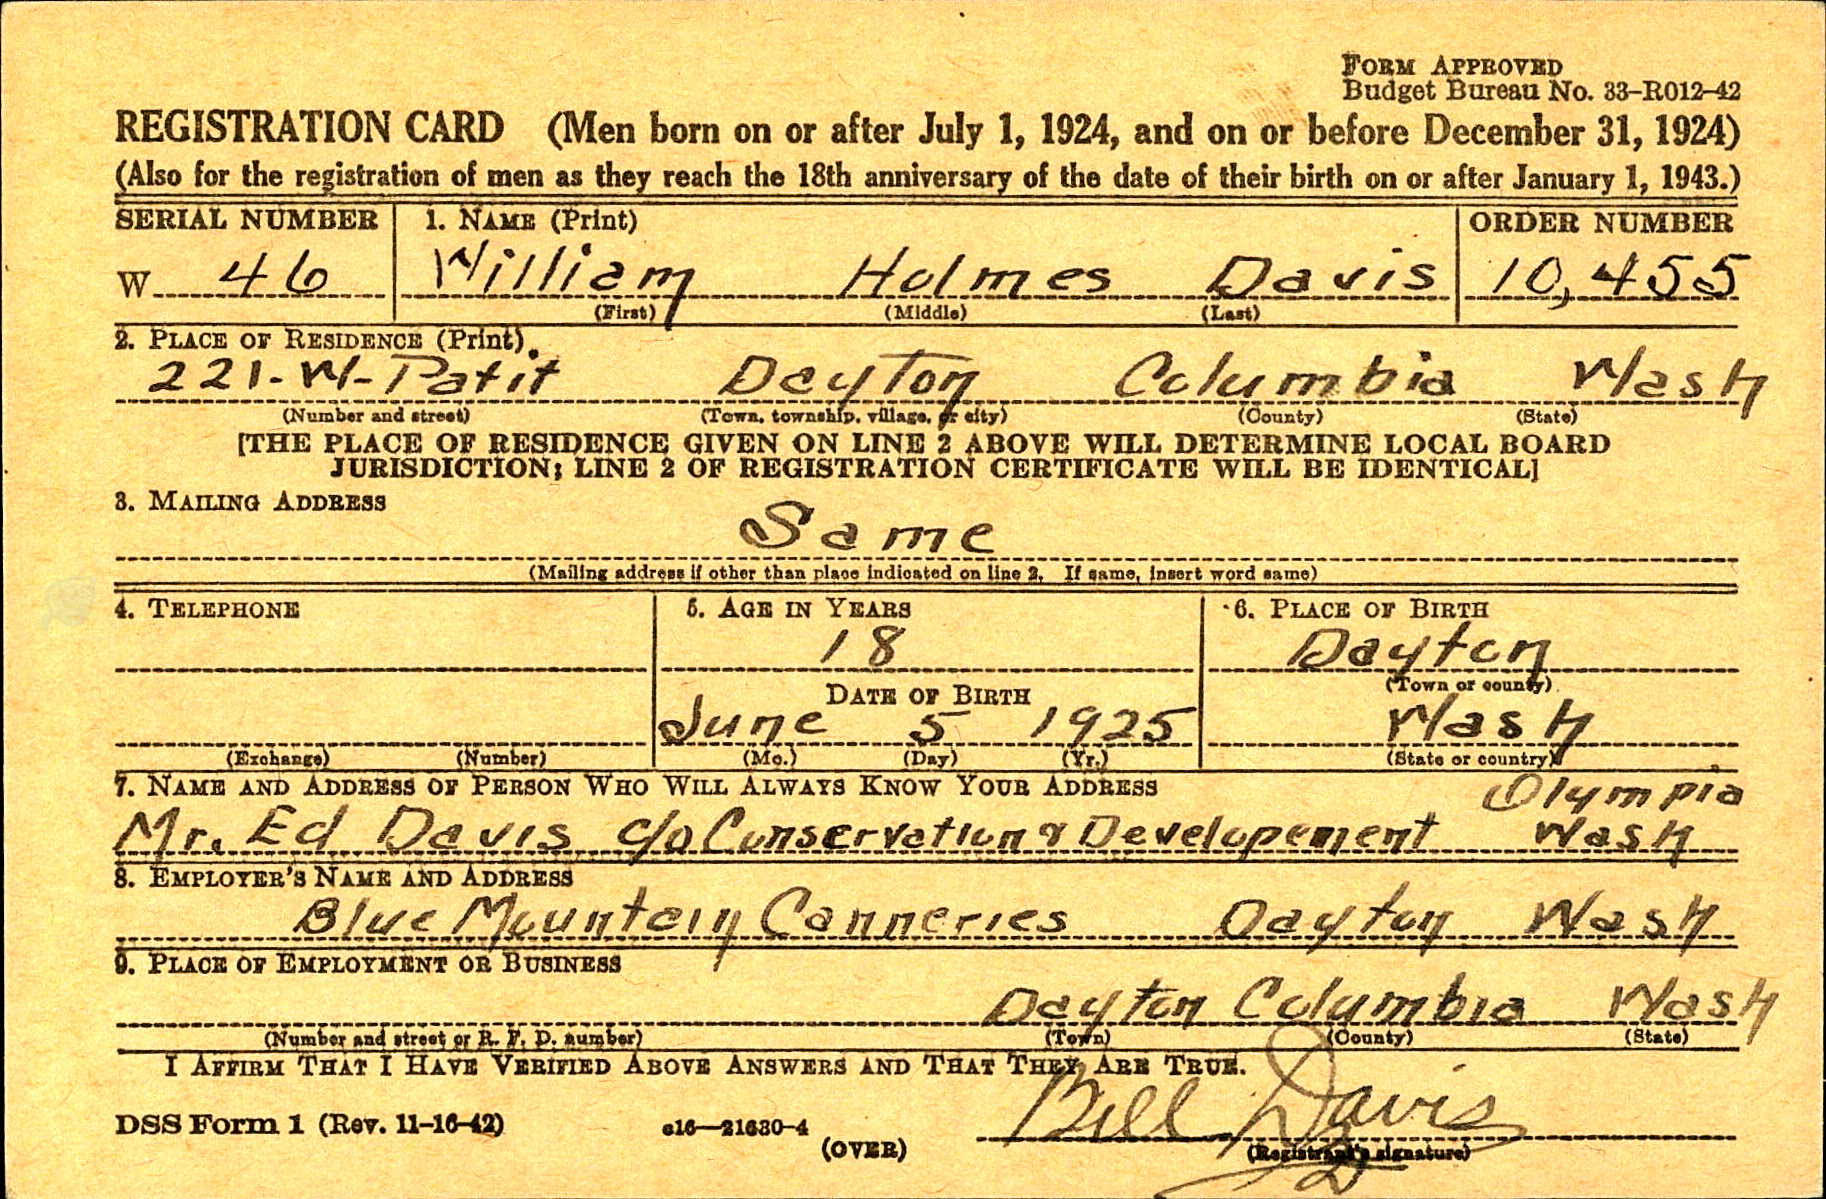 FORM APPROVED
Budget Bureau No. 33–R012–42
REGISTRATION CARD (Men born on or after July 1, 1924, and on or before December 31, 1924)
(Also for the registration of men as they reach the 18th anniversary of the date of their birth on or after January 1, 1943.)
SERIAL NUMBER 1. NAME (Print) ORDER NUMBER
W 46 William Holmes Davis 10,455
(First) (Middle) (Last)
2. PLACE OF RESIDENCE (Print)
221-W-Patit Dayton Columbia Wash
(Number and street) (Town, township, village, or city) (County) (State)
[THE PLACE OF RESIDENCE GIVEN ON LINE 2 ABOVE WILL DETERMINE LOCAL BOARD
JURISDICTION; LINE 2 OF REGISTRATION CERTIFICATE WILL BE IDENTICAL]
3. MAILING ADDRESS
Same
(Mailing address if other than place indicated on line 2. If same, insert word same)
4. TELEPHONE 5. AGE IN YEARS 6. PLACE OF BIRTH
18 Dayton
(Town or county)
DATE OF BIRTH
June 5 1925 Wash
(Exchange) (Number) (Mo.) (Day) (Yr.) (State or country)
7. NAME AND ADDRESS OF PERSON WHO WILL ALWAYS KNOW YOUR ADDRESS Olympia
Mr. Ed Davis c/o Conservation & Developement Wash
8. EMPLOYER'S NAME AND ADDRESS
Blue Mountain Canneries Dayton Wash
9. PLACE OF EMPLOYMENT OR BUSINESS
Dayton Columbia Wash
(Number and street or R. F. D. number) (Town) (County) (State)
I AFFIRM THAT I HAVE VERIFIED ABOVE ANSWERS AND THAT THEY ARE TRUE.
Bill Davis
DSS Form 1 (Rev. 11–16–42) e16—21630–4 (OVER) (Registrant's signature)